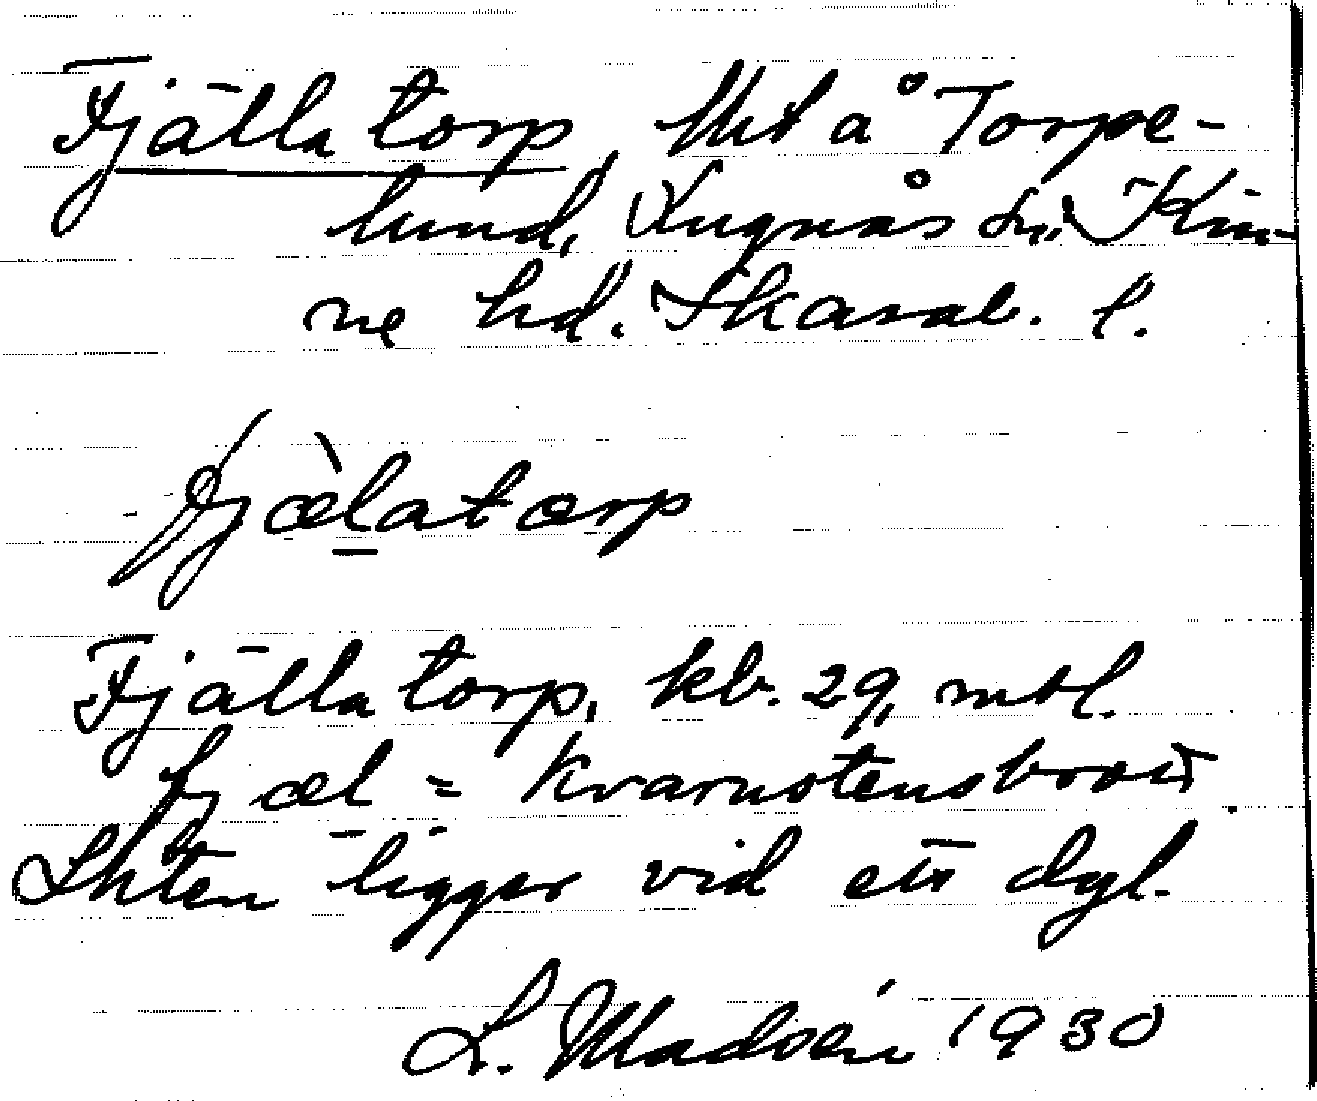 Fjällatorp, lht å Torpe-
lund, Lugnås sn, Kin-
ne hd. Skarab. l.
fjælatorp
Fjällatorp, kb. 29, mtl.
fjæl = kvarnstensbrott
Lhten ligger vid ett dyl.
L. Madsén 1930